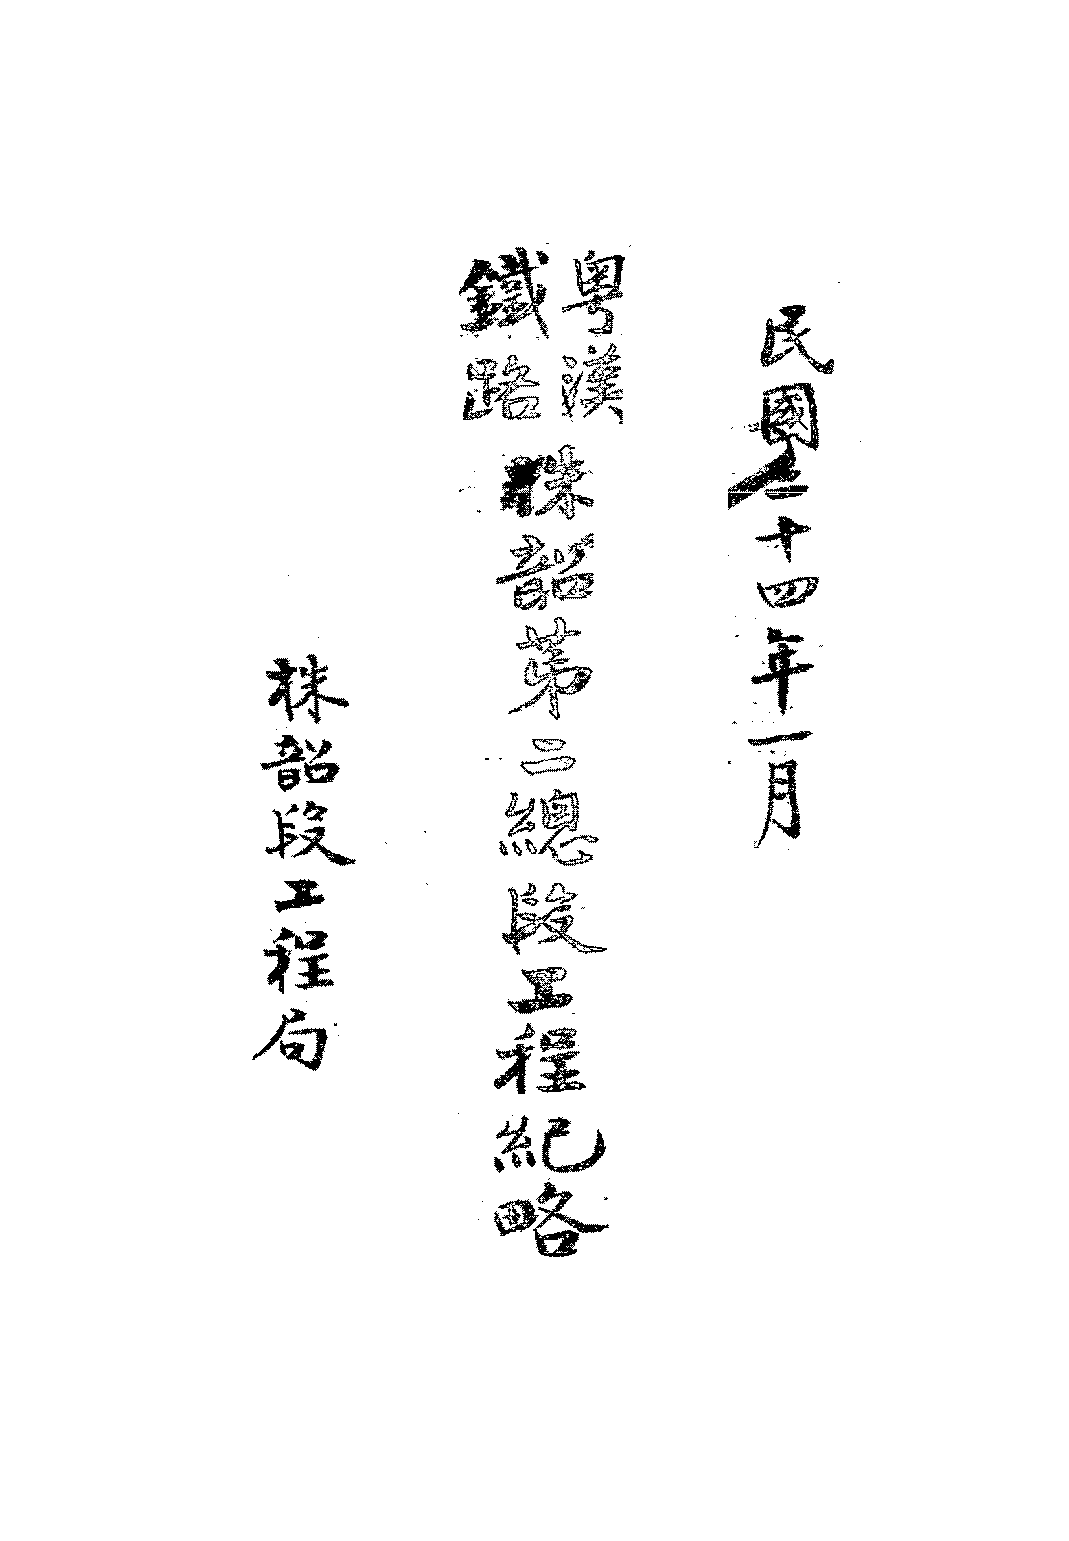 民國二十四年一月
粤漢鐵路株韶第二總段工程紀略
株韶段工程局